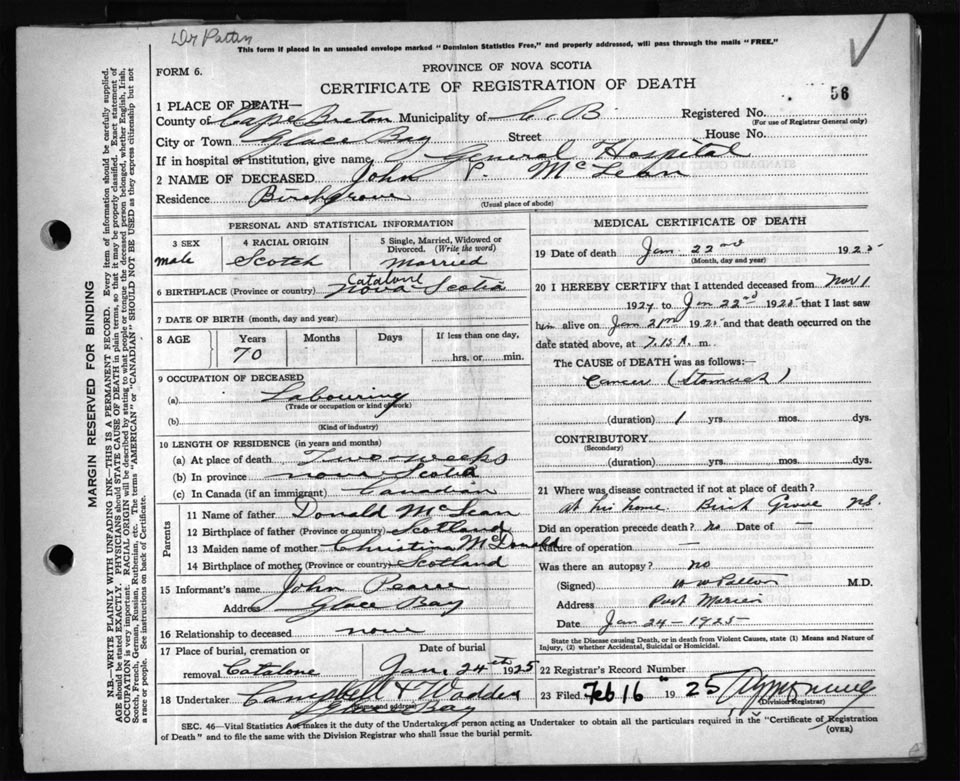 Dr Patton
This form if placed in an unsealed envelope marked "Dominion Statistics Free," and properly addressed, will pass through the mails "FREE."
FORM 6.
PROVINCE OF NOVA SCOTIA
CERTIFICATE OF REGISTRATION OF DEATH
56
1 PLACE OF DEATH—
County of Cape Breton Municipality of C. B Registered No.
(For use of Registrar General only)
City or Town Glace Bay Street House No.
If in hospital or institution, give name General Hospital
2 NAME OF DECEASED John P. McLean
Residence Birchgrove
(Usual place of abode)
PERSONAL AND STATISTICAL INFORMATION
3 SEX
male
4 RACIAL ORIGIN
Scotch
5 Single, Married, Widowed or Divorced. (Write the word)
Married
6 BIRTHPLACE (Province or country) Catalone Nova Scotia
7 DATE OF BIRTH (month, day and year)
8 AGE Years Months Days If less than one day,
70 hrs. or min.
9 OCCUPATION OF DECEASED
(a) Labouring
(Trade or occupation or kind of work)
(b)
(Kind of industry)
10 LENGTH OF RESIDENCE (in years and months)
(a) At place of death Two weeks
(b) In province Nova Scotia
(c) In Canada (if an immigrant) Canadian
Parents
11 Name of father Donald McLean
12 Birthplace of father (Province or country) Scotland
13 Maiden name of mother Christina McDonald
14 Birthplace of mother (Province or country) Scotland
15 Informant's name John Pearce
Address Glace Bay
16 Relationship to deceased none
17 Place of burial, cremation or removal Catalone Date of burial Jan 24th 1925
18 Undertaker Campbell & Wadden
(Name and address)
Glace Bay
MEDICAL CERTIFICATE OF DEATH
19 Date of death Jan. 22nd 1925
(Month, day and year)
20 I HEREBY CERTIFY that I attended deceased from Nov 1
1924 to Jan 22nd 1925 that I last saw
him alive on Jan 21st 1925 and that death occurred on
date stated above, at 7.15 A. m.
The CAUSE of DEATH was as follows:—
Cancer (Stomach)
(duration) 1 yrs. mos. dys.
CONTRIBUTORY
(Secondary)
(duration) yrs. mos. dys.
21 Where was disease contracted if not at place of death?
At his home. Birch Grove NS.
Did an operation precede death? No Date of —
Nature of operation —
Was there an autopsy? no
(Signed) M.D.
Address Port Morien
Date Jan 24 - 1925
State the Disease causing Death, or in death from Violent Causes, state (1) Means and Nature of Injury, (2) whether Accidental, Suicidal or Homicidal.
22 Registrar's Record Number
23 Filed Feb 16" 1925
(Division Registrar)
SEC. 46—Vital Statistics Act makes it the duty of the Undertaker or person acting as Undertaker to obtain all the particulars required in the "Certificate of Registration
of Death" and to file the same with the Division Registrar who shall issue the burial permit.
(OVER)
MARGIN RESERVED FOR BINDING
N.B.—WRITE PLAINLY WITH UNFADING INK—THIS IS A PERMANENT RECORD. Every item of information should be carefully supplied.
AGE should be stated EXACTLY. PHYSICIANS should STATE CAUSE OF DEATH in plain terms, so that it may be properly classified. Exact statement of
OCCUPATION is very important. RACIAL ORIGIN will be described by stating to what people or tongue the deceased person belonged, whether English, Irish,
Scotch, French, German, Russian, Ruthenian, etc. The terms "AMERICAN" or "CANADIAN" SHOULD NOT BE USED as they express citizenship but not
a race or people. See instructions on back of Certificate.